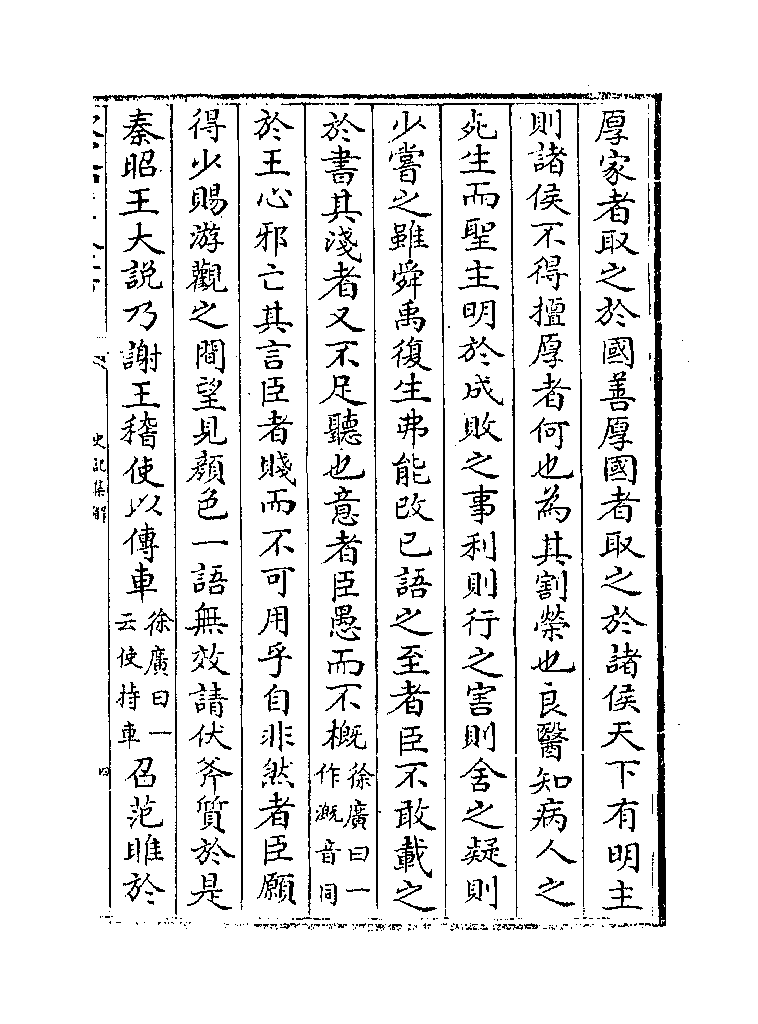 厚家者取之於國善厚國者取之於諸侯天下有明主
則諸侯不得擅厚者何也為其割榮也良醫知病人之
死生而聖主明於成敗之事利則行之害則舍之疑則
少嘗之雖舜禹復生弗能改已語之至者臣不敢載之
於書其淺者又不足聽也意者臣愚而不概徐廣曰一作溉音同
於王心邪亡其言臣者賤而不可用乎自非然者臣願
得少賜游觀之間望見顏色一語無效請伏斧質於是
秦昭王大説乃謝王稽使以傳車徐廣曰一云使持車召范睢於
史記集解
四